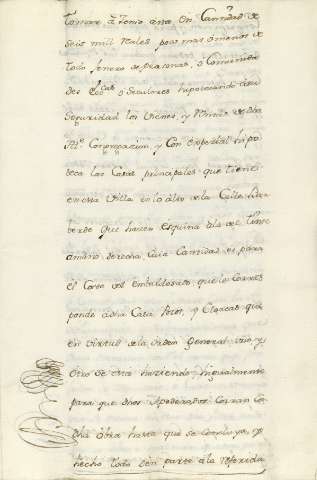 tomar a censo asta en Cantidad de
seis mil Reales poco mas o menos de
todo genero de personas, o Comunida
des Ecc.cas o Seculares hipotecando a su
seguridad los Vienes, y Rentas de dha
Rl. Corporacion, y con especial hipo
teca las Casas principales que tiene
en esta Villa en lo alto de la Calle
berde que hacen esquina a la de
a mano derecha, cuia Cantidad es para
el Costo del embaldosado, que le corres
ponde a dha Casa Arcos, y Cloacas que
en virtud de la orden General, uno, y
otro se esta haciendo; Igualmente
para que dhos Apoderados Corran con
dha obra hasta que se concluya, y
hecho todo den parte a la referida